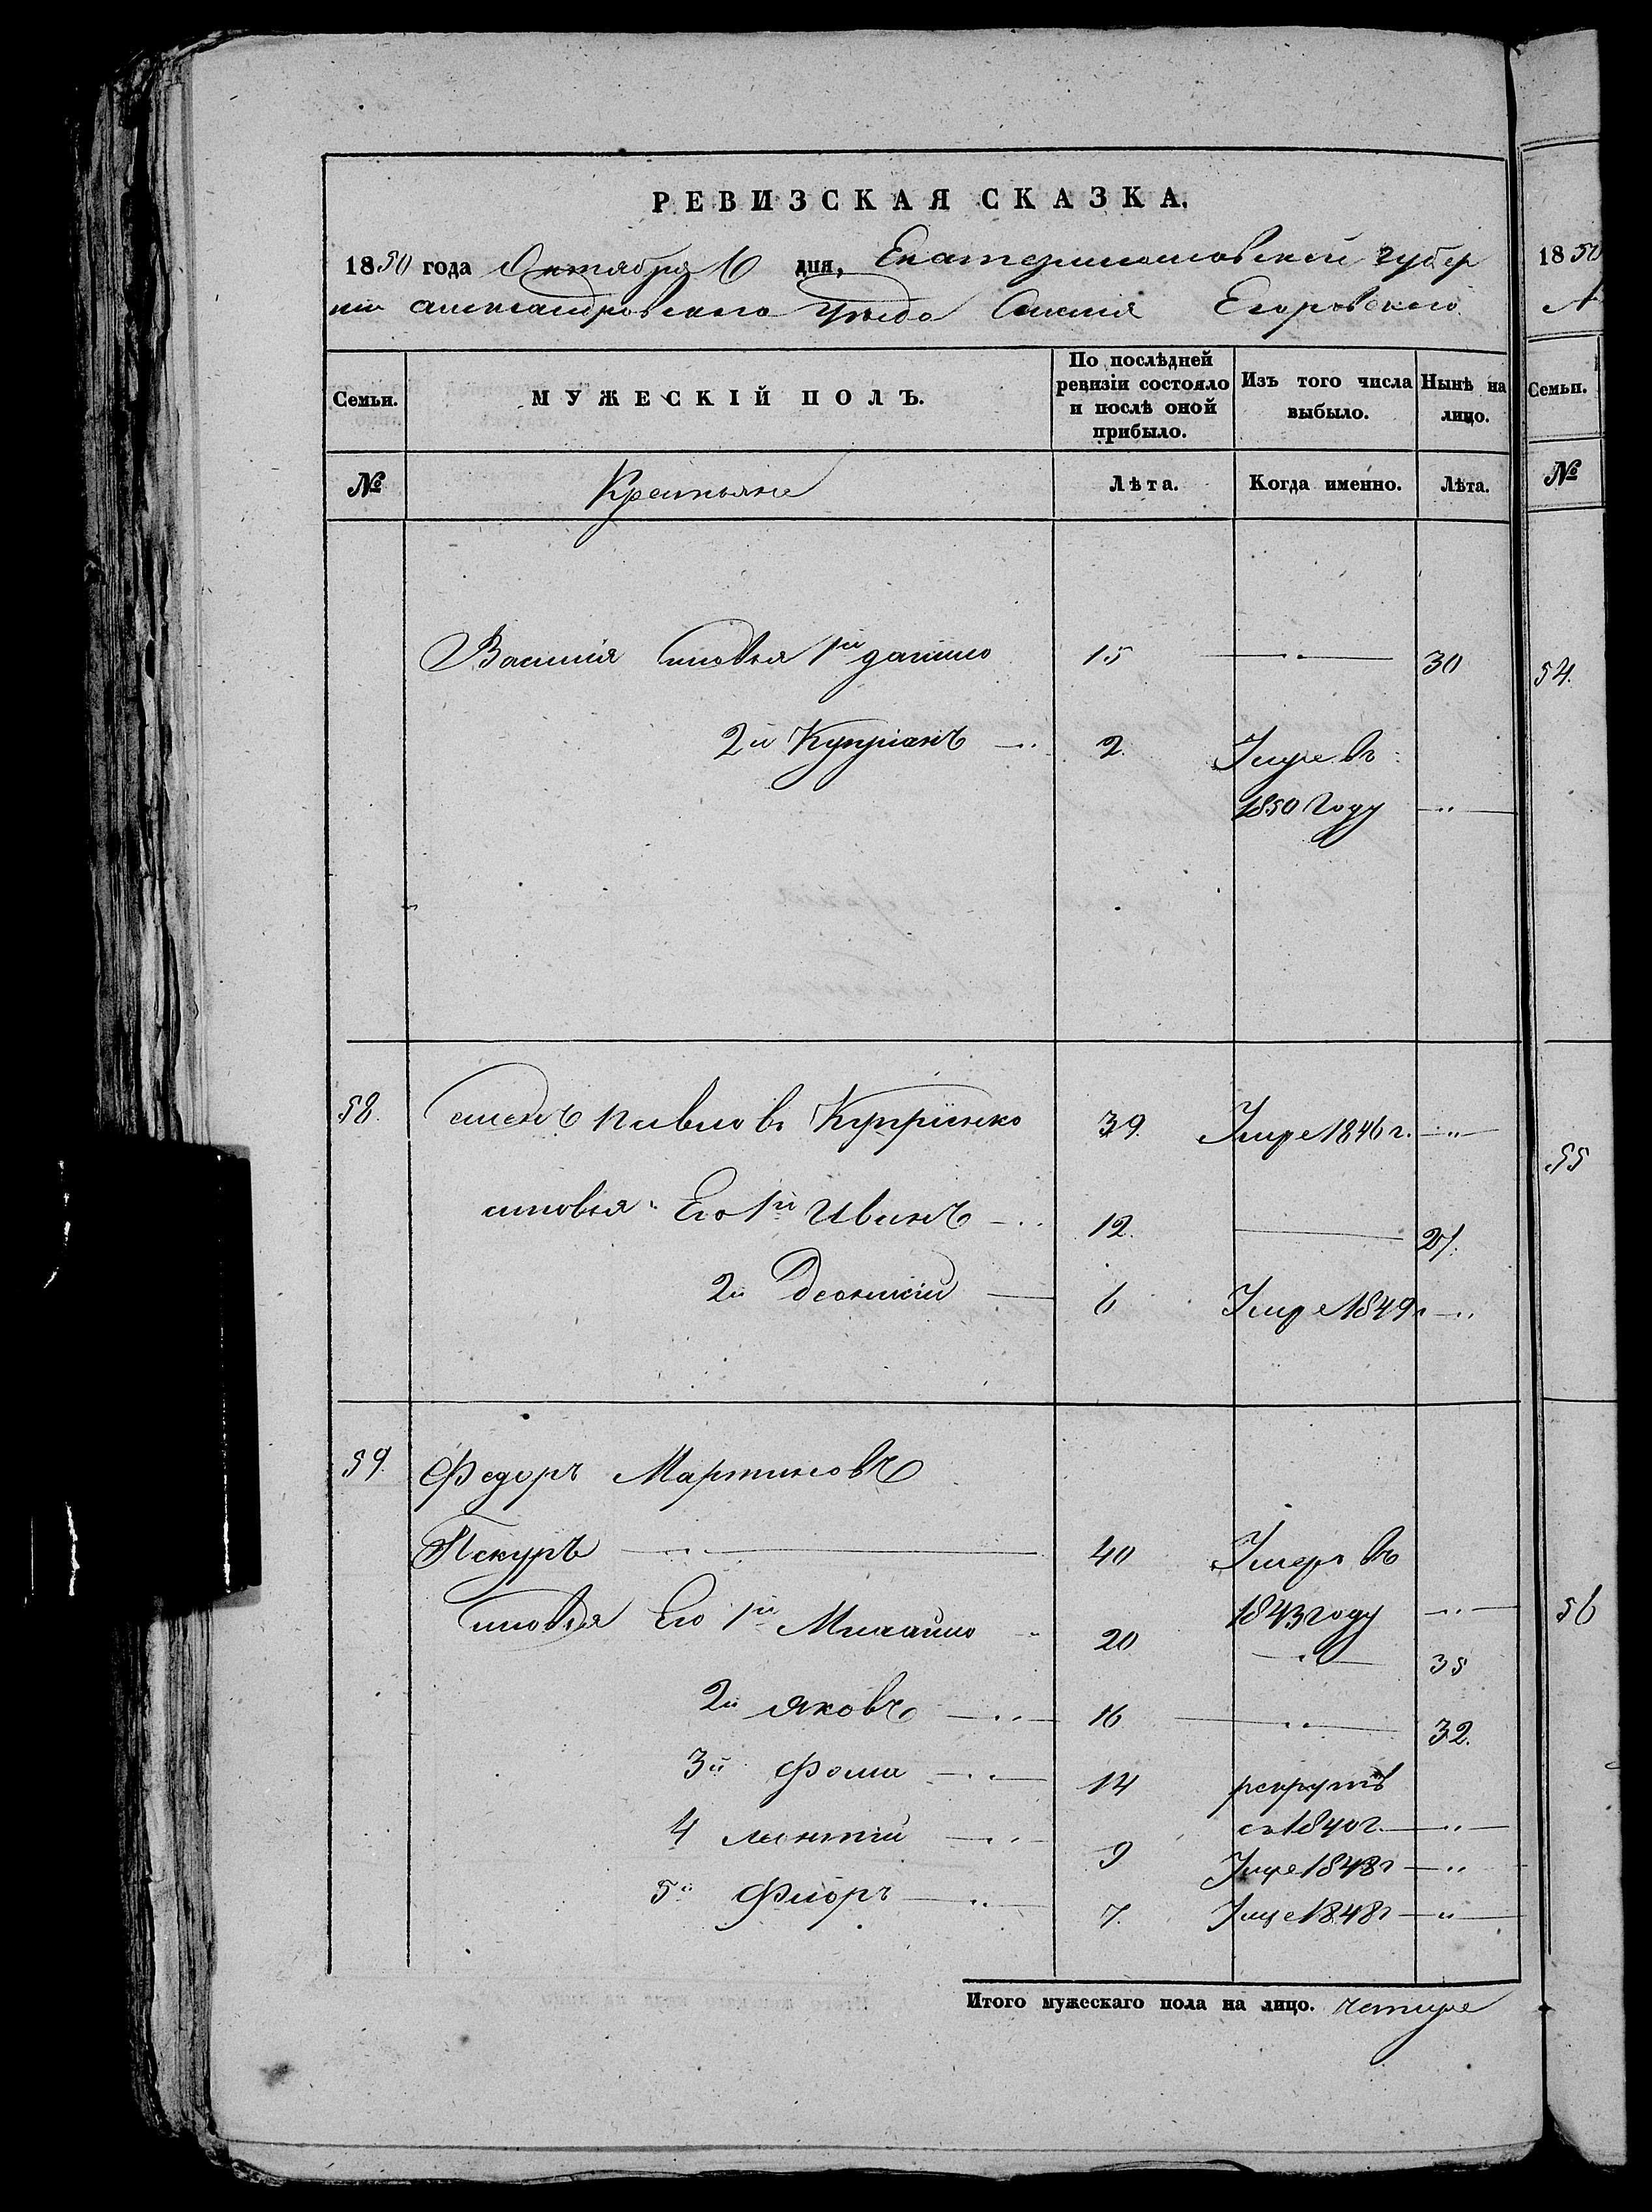 РЕВИЗСКАЯ СКАЗКА.
1850 года Октября 6 дня, Екатеринославской губер
нии Александровского уѣзда Егоровского
Семьи. МУЖЕСКІЙ ПОЛЪ. По послѣдней ревизіи состояло и послѣ оной прибыло. Изъ того числа выбыло. Нынѣ на лицо.
№ Крестьяне Лѣта. Когда именно. Лѣта.
Василія сыновья 1й данило 15 30
2й Купріанъ 2. Умре въ
1850 году
58. Павловъ Купріенко 39. Умре 1846 г.
сыновья Его 1й Иванъ 12. 27.
2й 6 Умре 1849 г
59. Федоръ Мартиновъ
40 Умеръ въ
1843 году
сыновья Его 1й Михайло 20 35
2й Яковъ 16 32.
3й Фома 14 рекрутъ
съ 1840 г.
4 9 Умре 1848 г
5й Флоръ 7. Умре 1848 г
Итого мужескаго пола на лицо. четыре
1850
А
Семьи.
№
54.
55
56